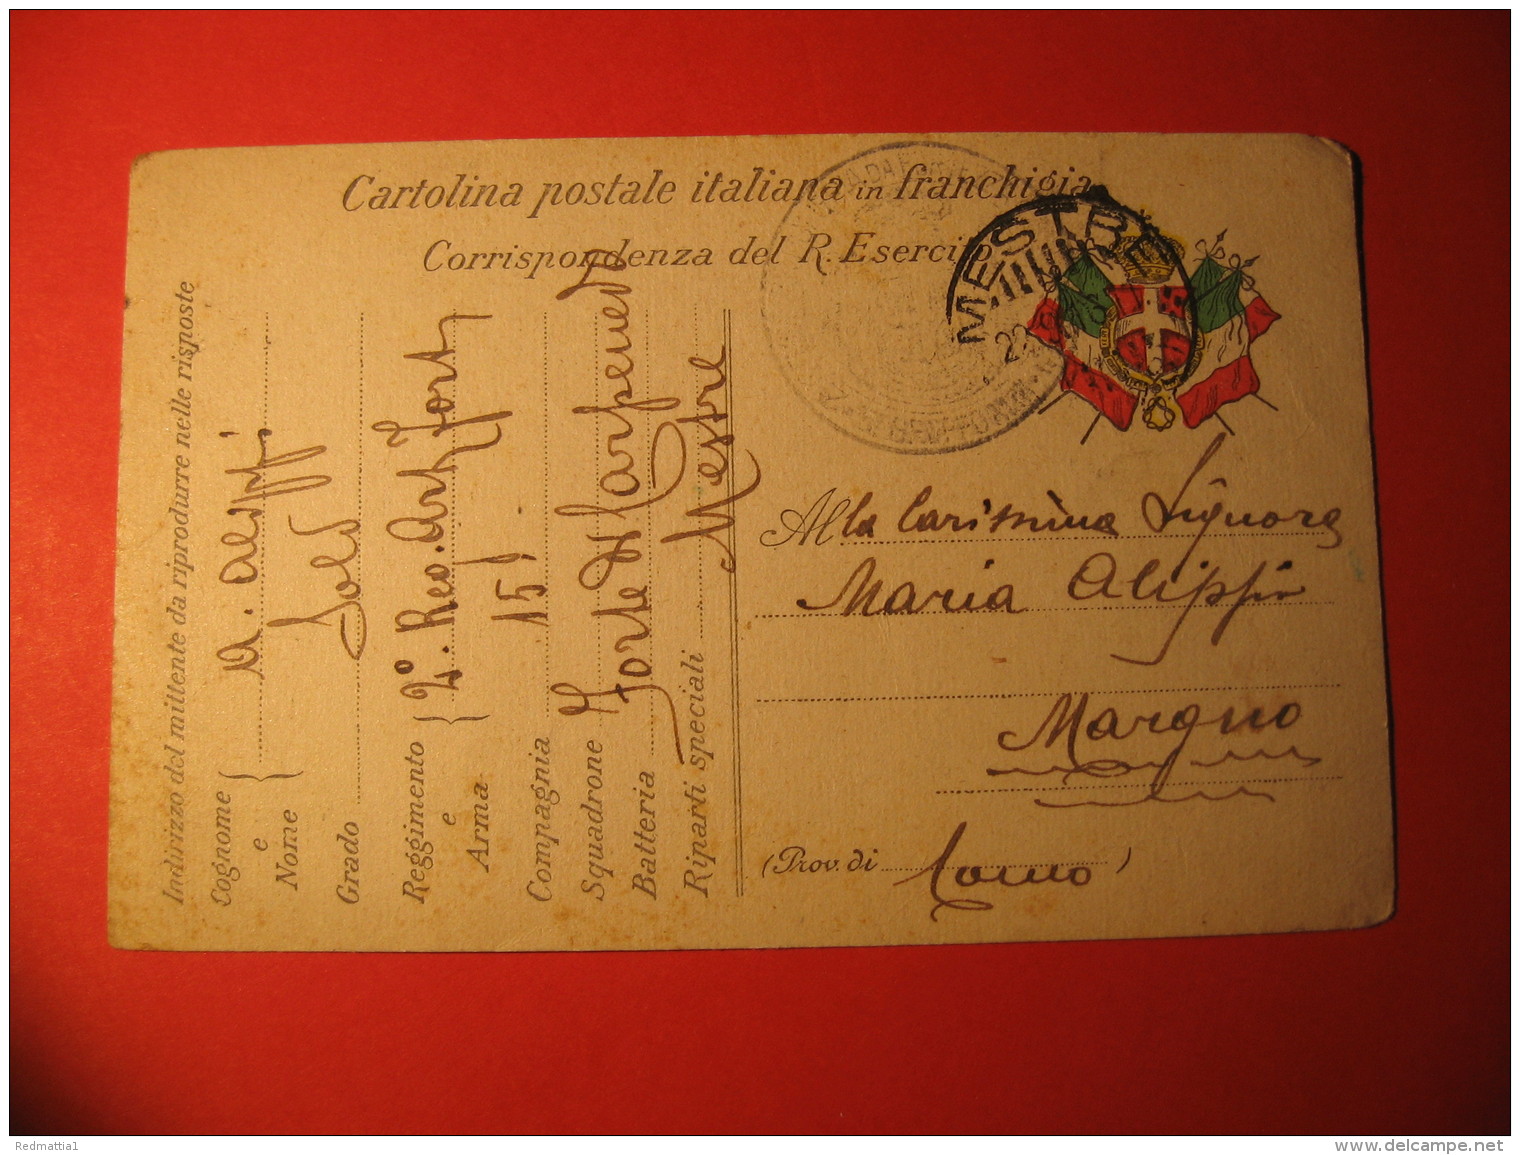 Cartolina postale italiana in franchigia
Corrispondenza del R. Esercito
MESTRE
22
Indirizzo del mittente da riprodurre nelle risposte
Cognome
e
Nome
A. Alippi
Grado
Sold
Reggimento
e
Arma
2° Reg. Art. Fort
Compagnia
15
Squadrone
Batteria
Forte Carpenedo
Riparti speciali
Mestre
Alla Carissima Signora
Maria Alippi
Margno
(Prov. di Como)
Redmattia1
www.delcampe.net